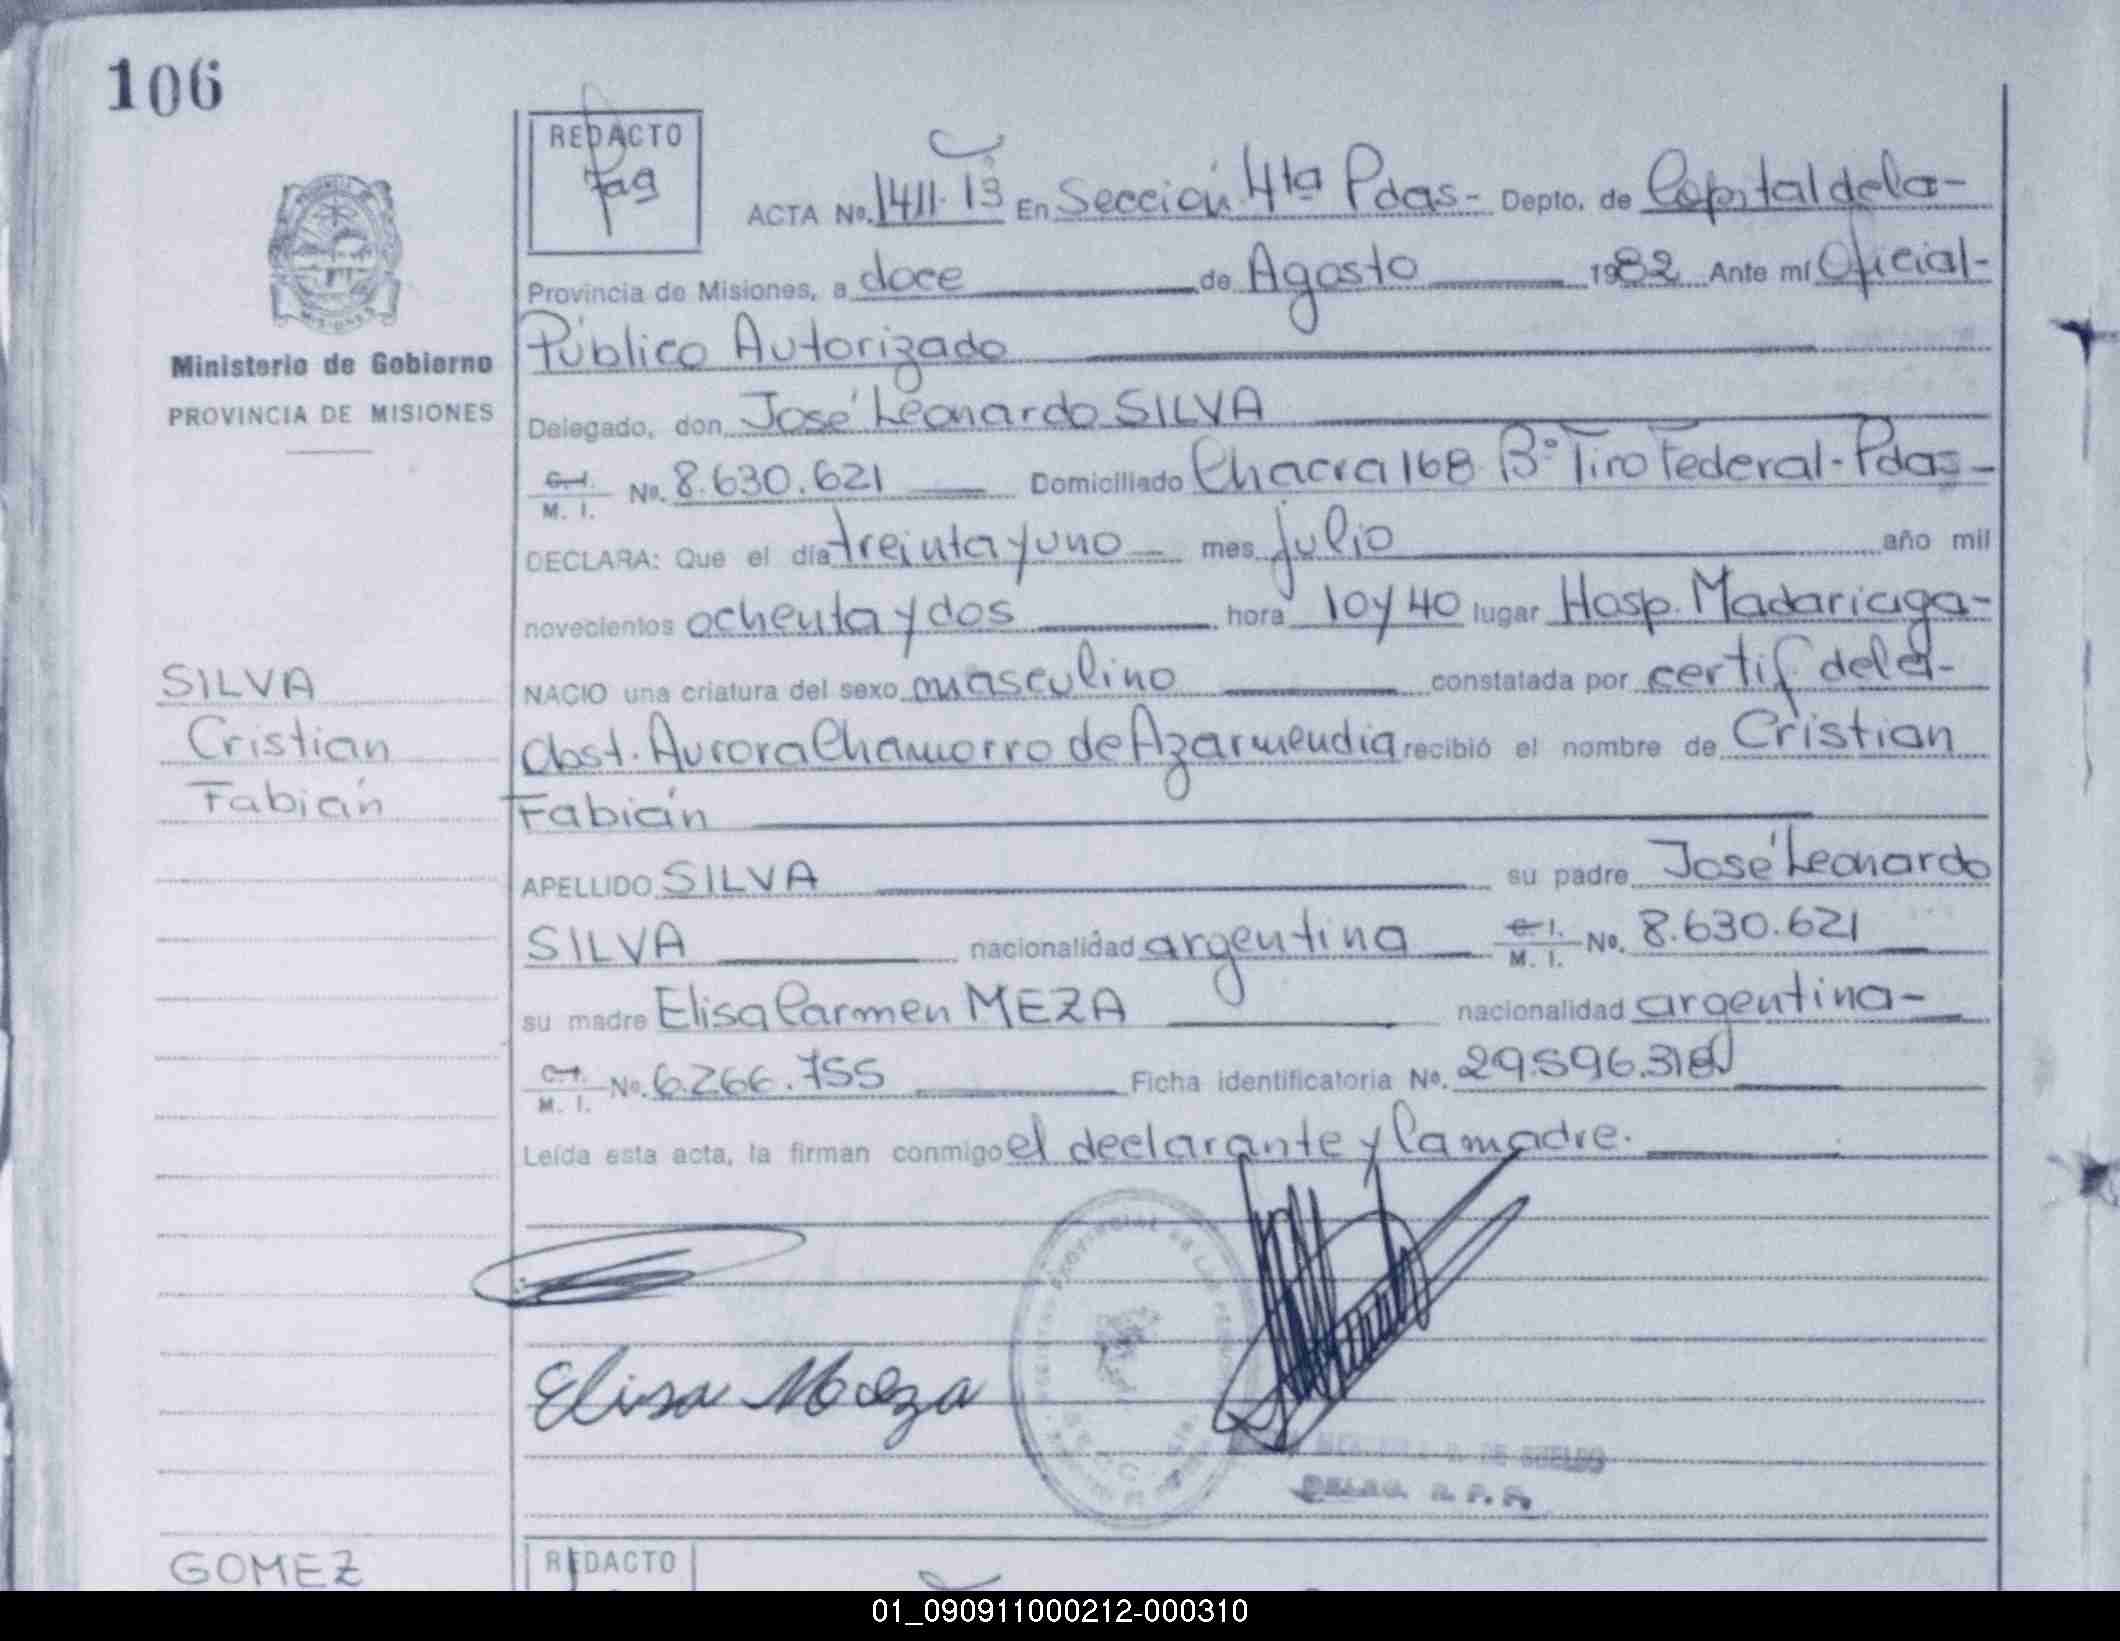 106
REDACTO
ACTA No. 1411. En Sección 4ta Pdas- Depto. de Capital de la-
Provincia de Misiones, a doce de Agosto 1982 Ante mí Oficial-
Público Autorizado
Ministerio de Gobierno
PROVINCIA DE MISIONES
Delegado, don José Leonardo SILVA
C.I. M. I. No. 8.630.621 Domiciliado Chacra 168 B° Tiro Federal-Pdas-
DECLARA: Que el día treinta y uno mes julio año mil
novecientos ochenta y dos hora 10 y 40 lugar Hosp. Madariaga-
SILVA
Cristian
Fabián
NACIO una criatura del sexo masculino constatada por certif de la-
Obst. Aurora Chamorro de Azarmendia recibió el nombre de Cristian
Fabián
APELLIDO SILVA su padre José Leonardo
SILVA nacionalidad argentina C.I. M. I. No. 8.630.621
su madre Elisa Carmen MEZA nacionalidad argentina-
C.I. M. I. No. 6.266.755 Ficha identificatoria No. 29.596.318
Leída esta acta, la firman conmigo el declarante y la madre.
Elisa Meza
GOMEZ
REDACTO
01_090911000212-000310